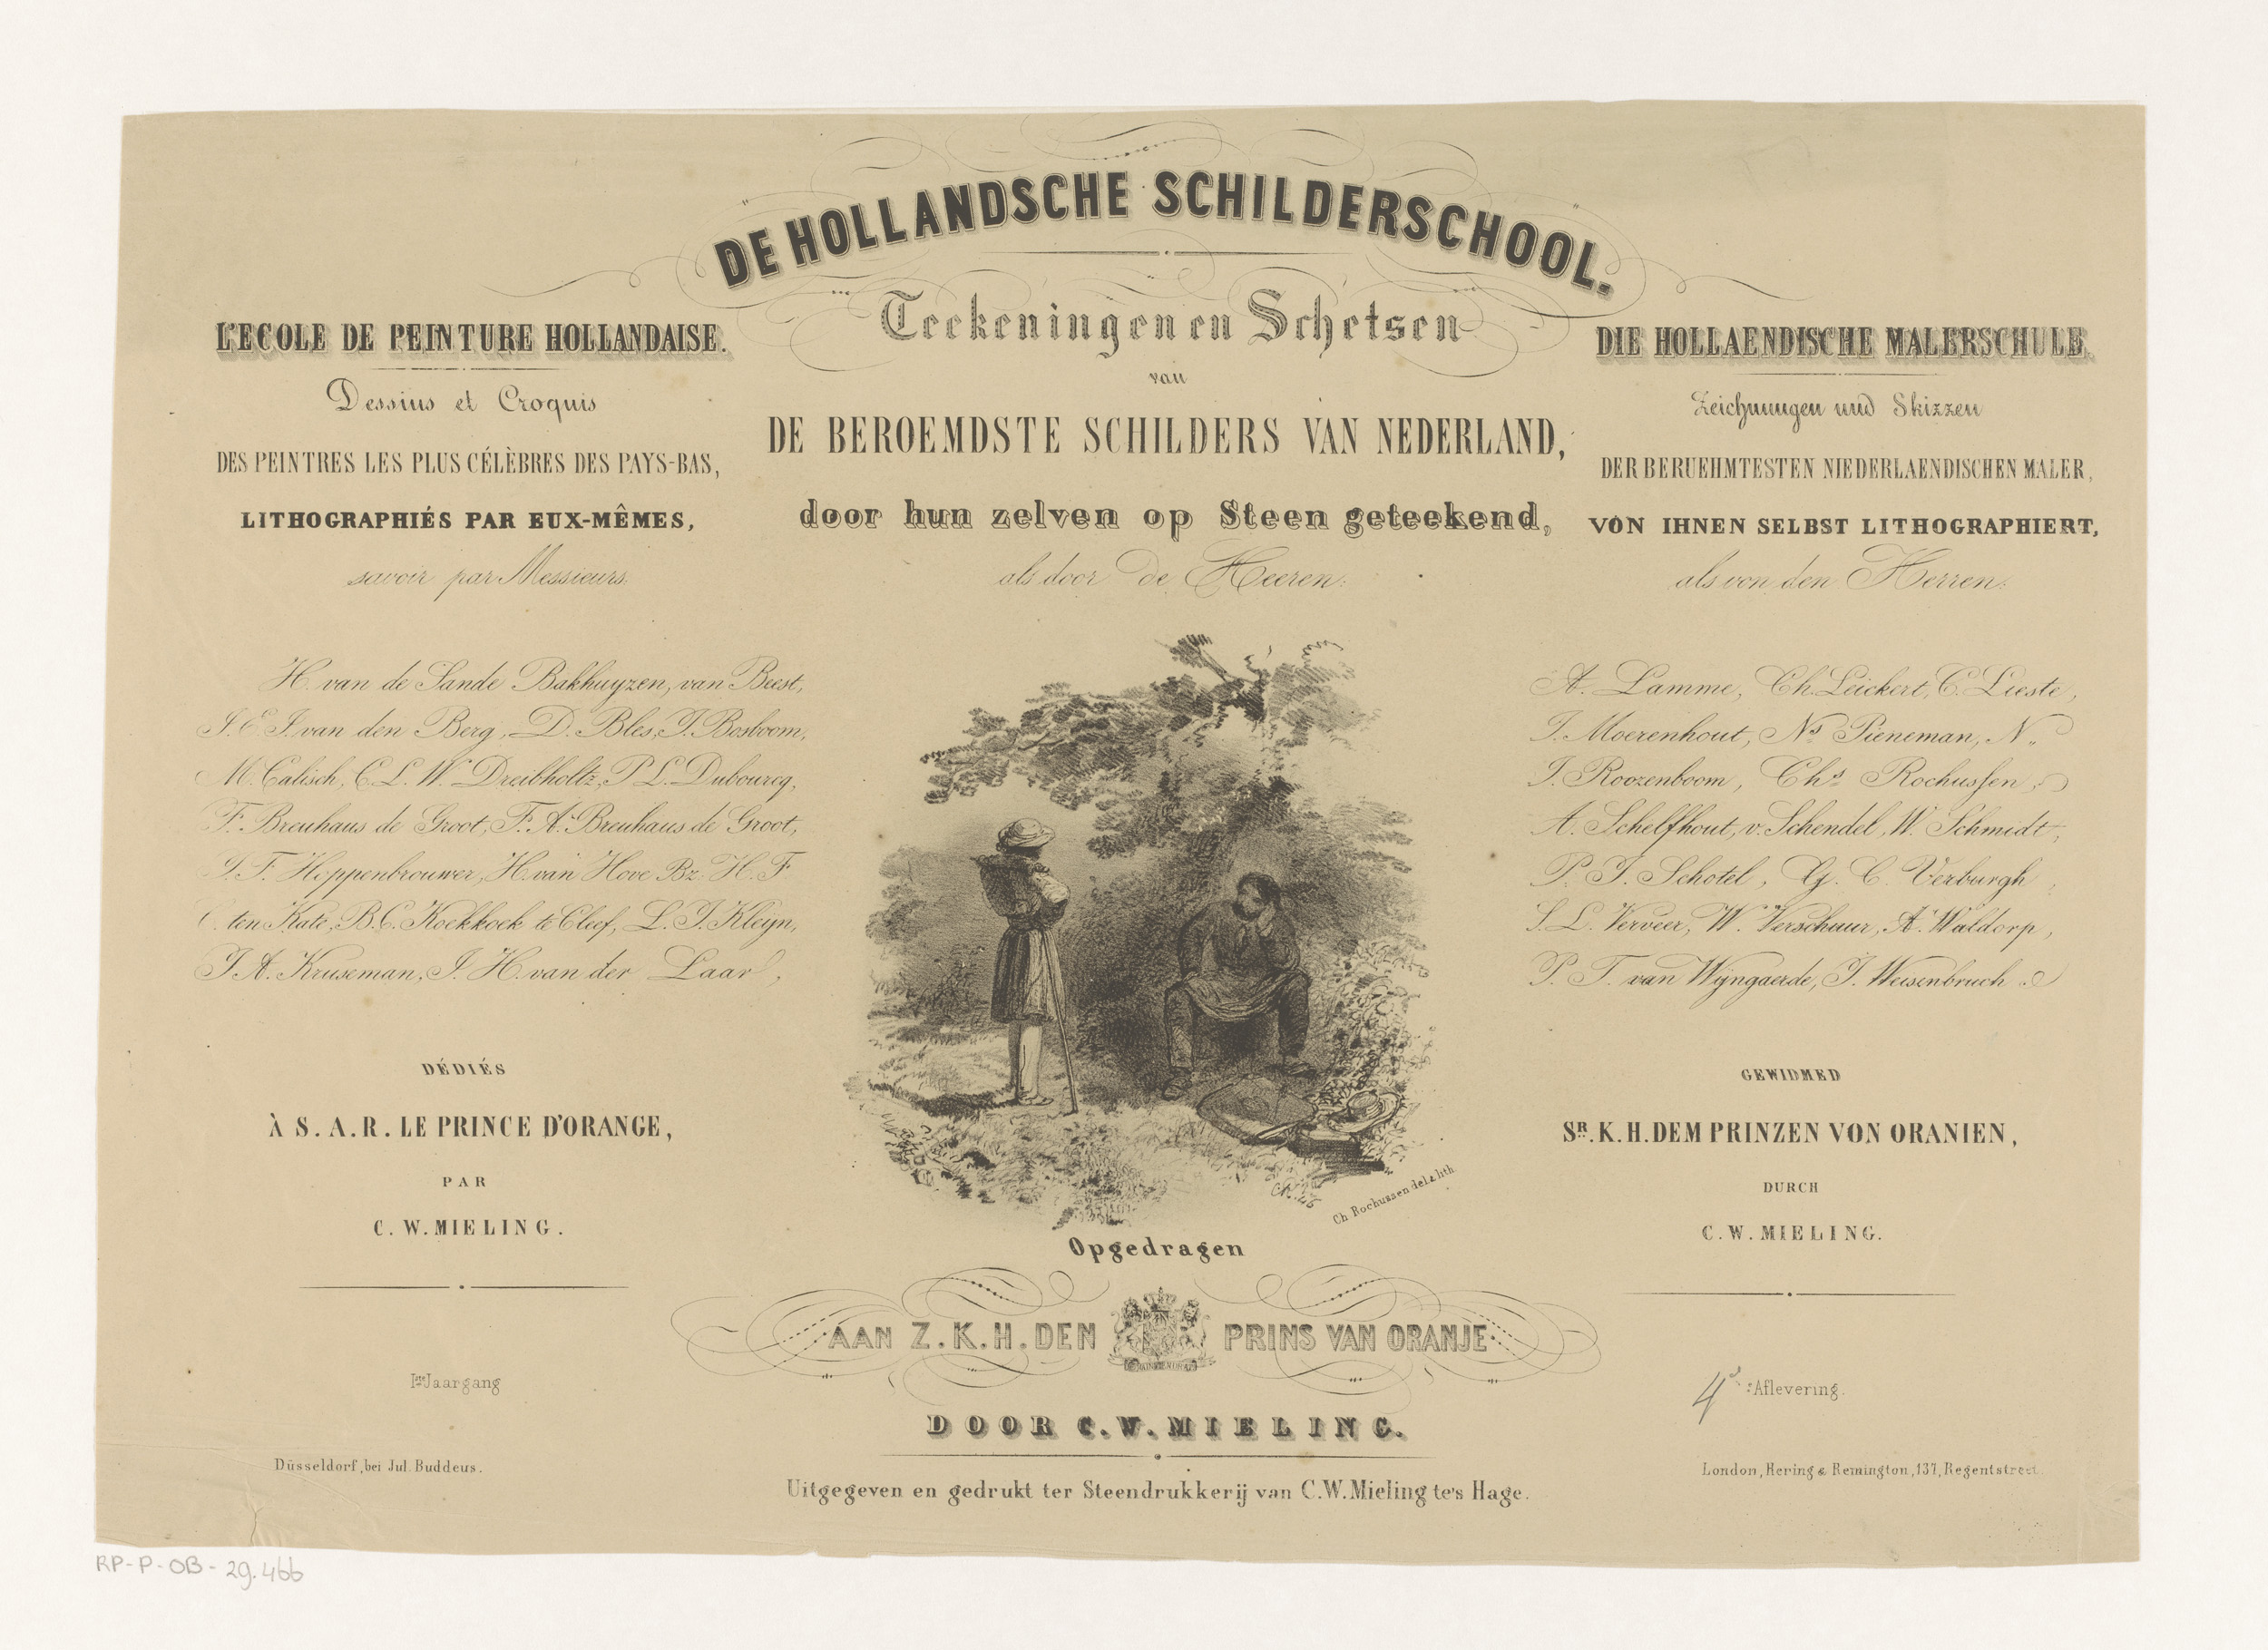 DE HOLLANDSCHE SCHILDERSCHOOL.
Teekeningen en Schetsen
van
DE BEROEMDSTE SCHILDERS VAN NEDERLAND,
door hun zelven op Steen geteekend,
als door de Heeren:
L'ECOLE DE PEINTURE HOLLANDAISE.
Dessins et Croquis
DES PEINTRES LES PLUS CÉLÈBRES DES PAYS-BAS,
LITHOGRAPHIÉS PAR EUX-MÊMES,
savoir par Messieurs:
H. van de Sande Bakhuyzen, van Beest,
J. E. J. van den Berg, D. Bles, J. Bosboom,
M. Calisch, C. L. W. Dreibholtz, P. L. Dubourcq,
F. Breuhaus de Groot, F. A. Breuhaus de Groot,
J. F. Hoppenbrouwer, H. van Hove Bz. H. F.
C. ten Kate, B. C. Koekkoek te Cleef, L. J. Kleyn,
J. A. Kruseman, J. H. van der Laar,
DÉDIÉS
À S. A. R. LE PRINCE D'ORANGE,
PAR
C. W. MIELING.
1ste Jaargang
Düsseldorf, bei Jul. Buddeus.
DIE HOLLAENDISCHE MALERSCHULE.
Zeichnungen und Skizzen
DER BERUEHMTESTEN NIEDERLAENDISCHEN MALER,
VON IHNEN SELBST LITHOGRAPHIERT,
als von den Herren:
A. Lamme, Ch. Leickert, C. Lieste,
J. Moerenhout, Ns Pieneman, N.
J. Roozenboom, Chs Rochussen,
A. Schelfhout, v. Schendel, W. Schmidt,
P. J. Schotel, G. C. Verburgh,
S. L. Verveer, W. Verschuur, A. Waldorp,
P. T. van Wijngaerde, J. Weisenbruch.
GEWIDMED
SR. K. H. DEM PRINZEN VON ORANIEN,
DURCH
C. W. MIELING.
4e Aflevering.
London, Hering & Remington, 137, Regentstreet.
CR. 46
Ch Rochussen del & lith
Opgedragen
AAN Z. K. H. DEN PRINS VAN ORANJE
DOOR C. W. MIELING.
Uitgegeven en gedrukt ter Steendrukkerij van C. W. Mieling te's Hage.
RP-P-OB-29.466